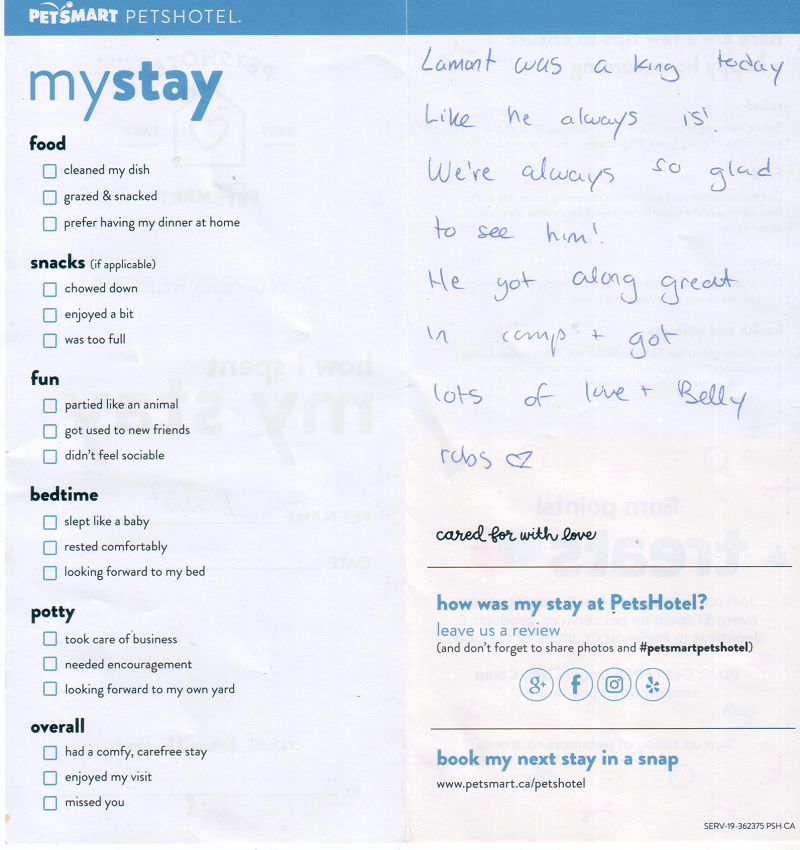 PETSMART PETSHOTEL.
mystay
food
cleaned my dish
grazed & snacked
prefer having my dinner at home
snacks (if applicable)
chowed down
enjoyed a bit
was too full
fun
partied like an animal
got used to new friends
didn't feel sociable
bedtime
slept like a baby
rested comfortably
looking forward to my bed
potty
took care of business
needed encouragement
looking forward to my own yard
overall
had a comfy, carefree stay
enjoyed my visit
missed you
Lamont was a king today
Like he always is!
We're always so glad
to see him!
He got along great
in camp + got
lots of love + Belly
rubs
cared for with love
how was my stay at PetsHotel?
leave us a review
(and don't forget to share photos and #petsmartpetshotel)
g+ f
book my next stay in a snap
www.petsmart.ca/petshotel
SERV-19-362375 PSH CA